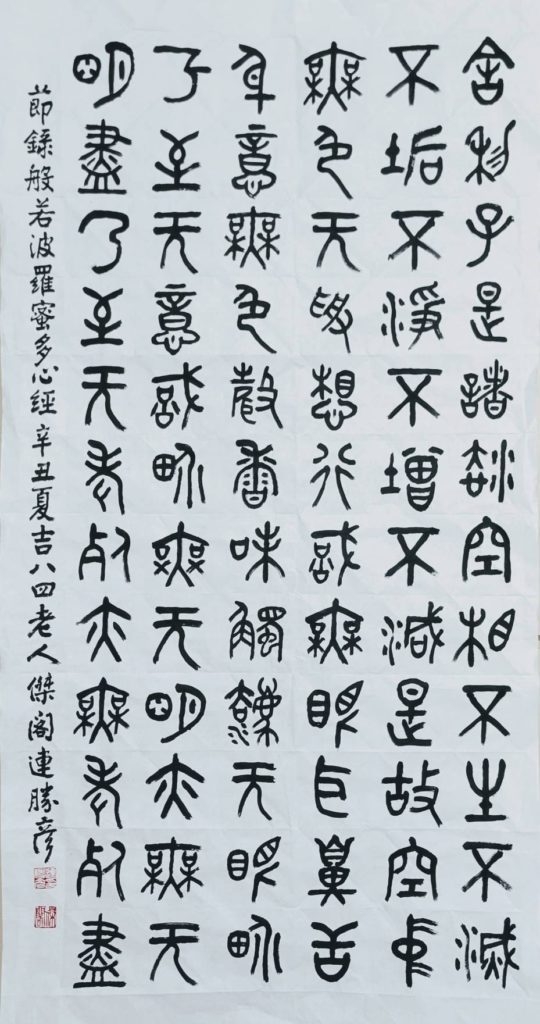 舍利子是諸法空相不生不滅
不垢不淨不增不減是故空中
無色无受想行識無眼耳鼻舌
身意無色聲香味觸法无眼界
乃至无意識界無无明亦無无
明盡乃至无老死亦無老死盡
節錄般若波羅蜜多心經辛丑夏吉八四老人傑閣連勝彥